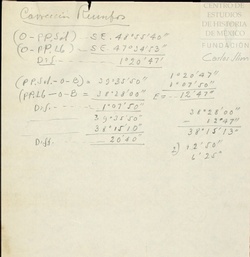 Corrección Rumbos
CENTRO DE
ESTUDIOS
DE HISTORIA
DE MÉXICO
FUNDACIÓN
Carlos Slim
(O-PP.Sol) -- S.E. 48°55'40"
(O-PP.L6) -- S.E. 47°34'53"
Dif. -- 1°20'47"
(PP.Sol-O-B) = 39°35'50"
(PP.L6-O-B = 38°28'00"
Dif. -- 1°07'50"
39°35'50"
38°15'10"
Diff. 20'40"
1°20'47"
1°07'50"
E = 12'47"
38°28'00"
- 12'47"
38°15'13"
2) 12'50"
6'25"